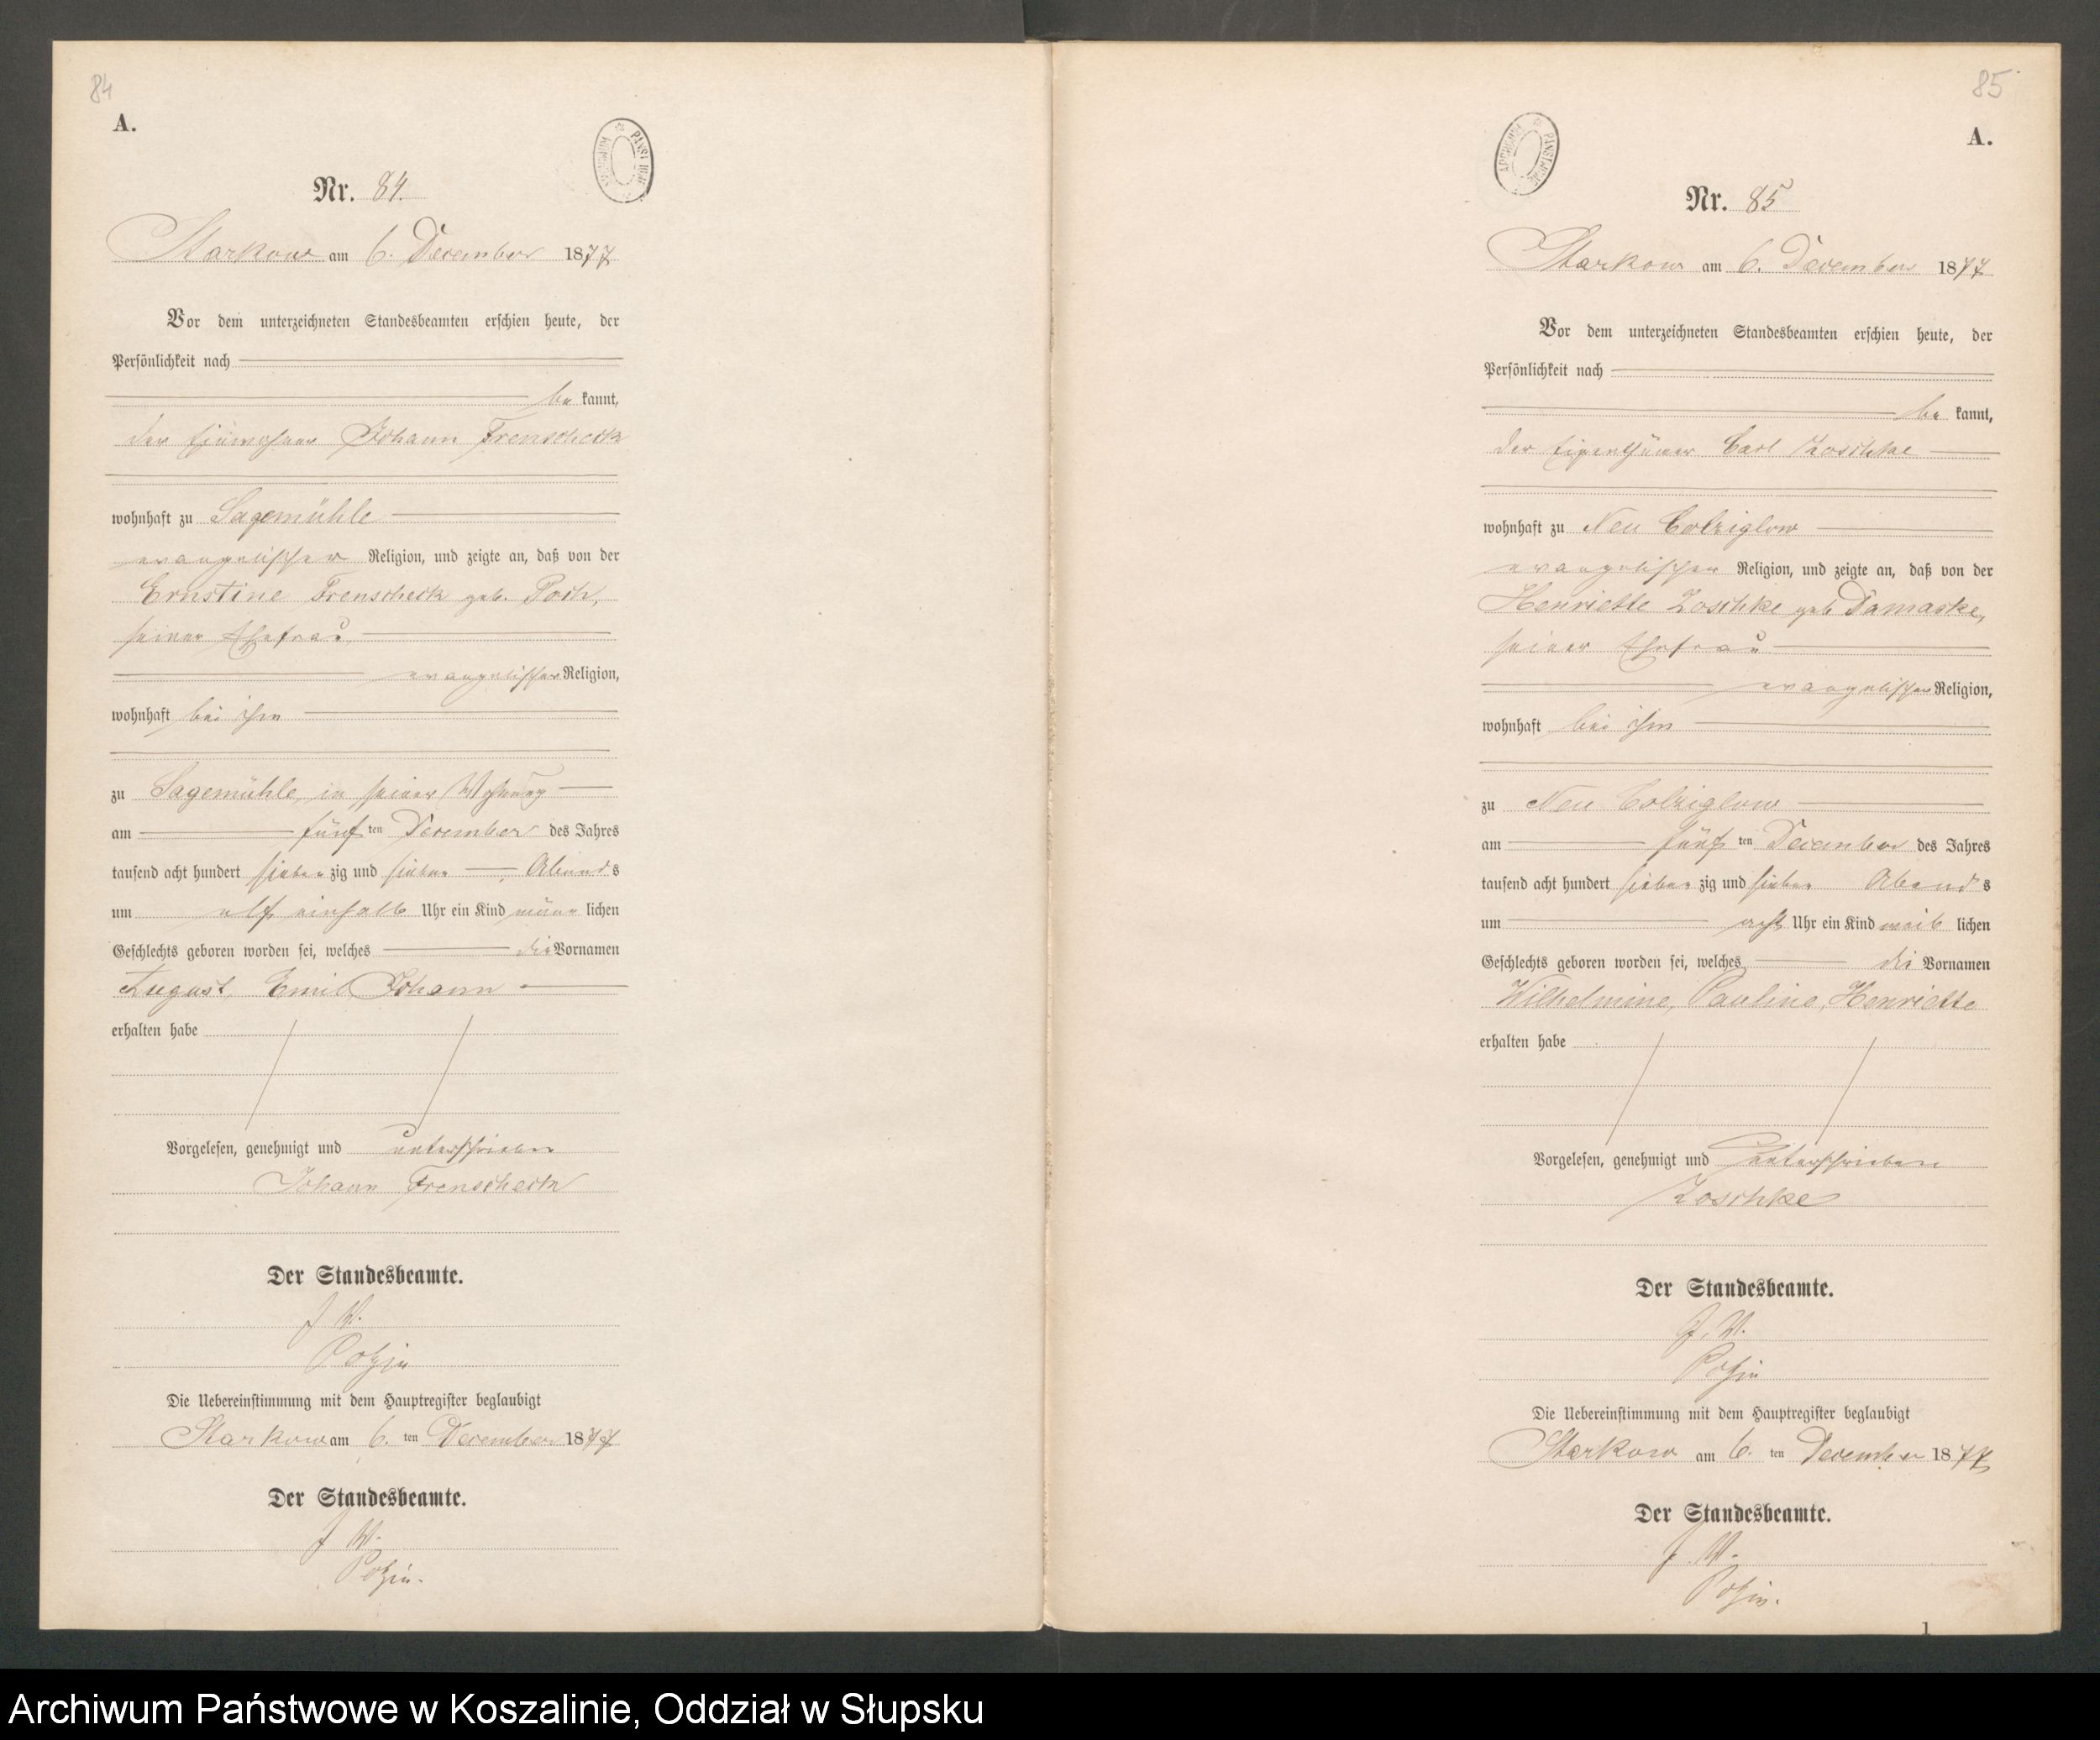 84
A.
Nr. 84.
Starkow am 6. December 1877
Vor dem unterzeichneten Standesbeamten erschien heute, der
Persönlichkeit nach
be kannt,
der Einwohner Johann Frenscheck
wohnhaft zu Sagemühle
evangelischer Religion, und zeigte an, daß von der
Ernstine Frenscheck geb. Poch,
seiner Ehefrau
evangelischer Religion,
wohnhaft bei ihm
zu Sagemühle in seiner Wohnung
am fünf ten December des Jahres
tausend acht hundert sieben zig und sieben Abend s
um elf einhalb Uhr ein Kind männ lichen
Geschlechts geboren worden sei, welches die Vornamen
August, Emil Johann
erhalten habe
Vorgelesen, genehmigt und unterschrieben
Johann Frenscheck
Der Standesbeamte.
J. V.
Die Uebereinstimmung mit dem Hauptregister beglaubigt
Starkow am 6. ten December 1877
Der Standesbeamte.
J. V.
85
A.
Nr. 85
Starkow am 6. December 1877
Vor dem unterzeichneten Standesbeamten erschien heute, der
Persönlichkeit nach
be kannt,
der Eigenthümer Carl Zoschke
wohnhaft zu Neu Colziglow
evangelischer Religion, und zeigte an, daß von der
Henriette Zoschke geb. Damaske,
seiner Ehefrau
evangelischer Religion,
wohnhaft bei ihm
zu Neu Colziglow
am fünf ten December des Jahres
tausend acht hundert sieben zig und sieben Abend s
um acht Uhr ein Kind weib lichen
Geschlechts geboren worden sei, welches die Vornamen
Wilhelmine, Pauline, Henriette
erhalten habe
Vorgelesen, genehmigt und unterschrieben
Zoschke
Der Standesbeamte.
J. V.
Die Uebereinstimmung mit dem Hauptregister beglaubigt
Starkow am 6. ten December 1877
Der Standesbeamte.
J. V.
1
Archiwum Państwowe w Koszalinie, Oddział w Słupsku